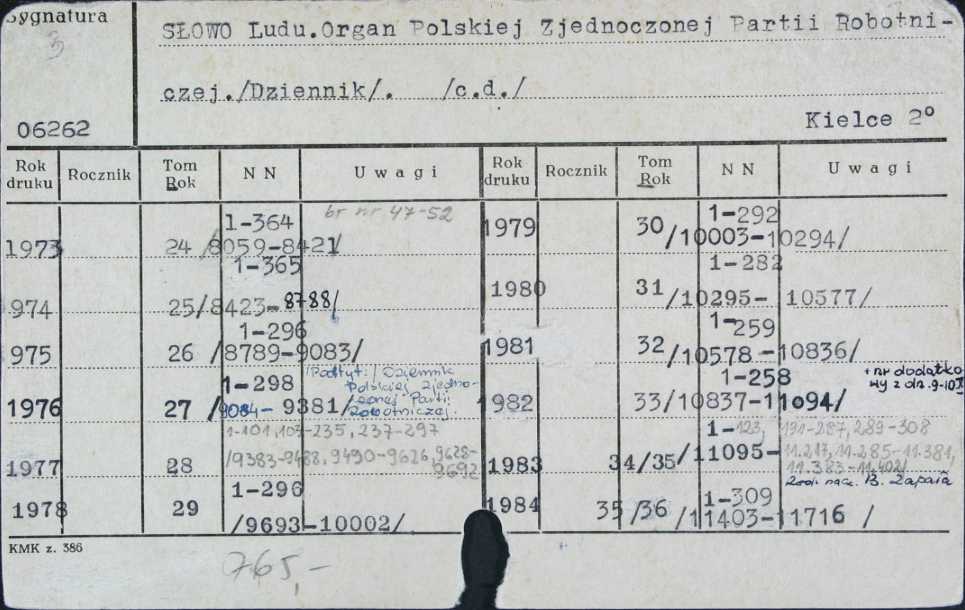 Sygnatura
3
SŁOWO Ludu.Organ Polskiej Zjednoczonej Partii Robotni-
czej./Dziennik/. /c.d./
06262
Kielce 2°
Rok druku Rocznik Tom Rok N N U w a g i Rok druku Rocznik Tom Rok N N U w a g i
1973 24 1-364 /8059-8421/ br nr 47-52
974 25 1-365 /8423-8788/
975 26 1-296 /8789-9083/
1976 27 1-298 /9084-9381/ /Podtyt:/ Dziennik
Polskiej Zjedno-
czonej Partii
Robotniczej.
1977 28 1-101, 103-235, 237-297
/9383-9488, 9490-9626, 9628-
9692
1978 29 1-296 /9693-10002/
1979 30 1-292 /10003-10294/
1980 31 1-282 /10295- 10577/
1981 32 1-259 /10578-10836/
1982 33 1-258 /10837-11094/ + nr dodatko
wy z dn. 9-10I
1983 34/35 1-123, 191-287, 289-308
/11095- 11.217, 11.285-11.381,
11.383-11.402/
Red. nacz. B. Zapała
1984 35/36 1-309 /11403-11716 /
KMK z. 386
765,-